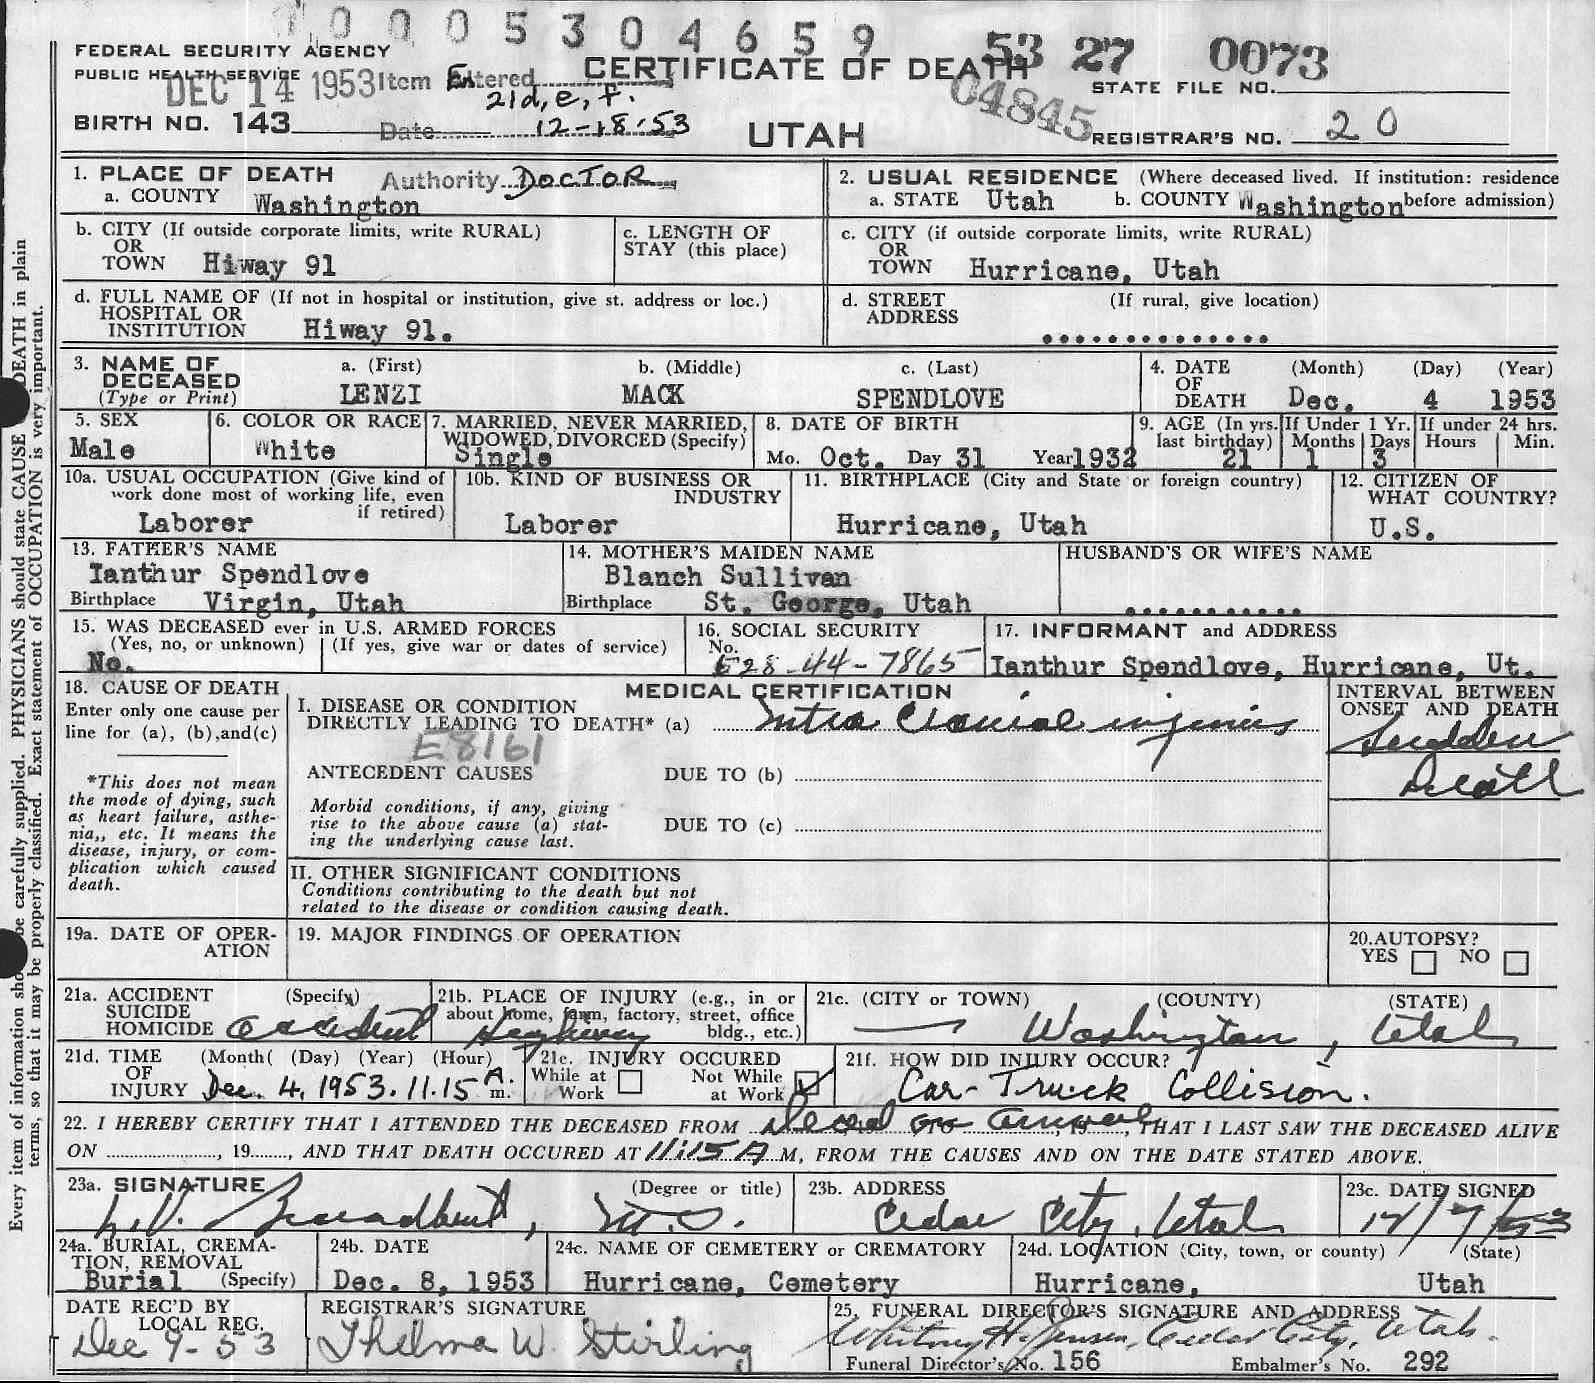 0005304659
FEDERAL SECURITY AGENCY
PUBLIC HEALTH SERVICE
DEC 14 1953 Item Entered
21d, e, f.
CERTIFICATE OF DEATH
53 27 0073
STATE FILE NO.
04845
BIRTH NO. 143
Date 12-18-53
UTAH
REGISTRAR'S NO. 20
1. PLACE OF DEATH Authority DOCTOR
a. COUNTY Washington
2. USUAL RESIDENCE (Where deceased lived. If institution: residence
a. STATE Utah b. COUNTY Washington before admission)
b. CITY (If outside corporate limits, write RURAL)
OR
TOWN Hiway 91
c. LENGTH OF
STAY (this place)
c. CITY (if outside corporate limits, write RURAL)
OR
TOWN Hurricane, Utah
d. FULL NAME OF (If not in hospital or institution, give st. address or loc.)
HOSPITAL OR
INSTITUTION Hiway 91.
d. STREET (If rural, give location)
ADDRESS ..............
3. NAME OF
DECEASED
(Type or Print)
a. (First)
LENZI
b. (Middle)
MACK
c. (Last)
SPENDLOVE
4. DATE (Month) (Day) (Year)
OF
DEATH Dec. 4 1953
5. SEX
Male
6. COLOR OR RACE
White
7. MARRIED, NEVER MARRIED,
WIDOWED, DIVORCED (Specify)
Single
8. DATE OF BIRTH
Mo. Oct. Day 31 Year 1932
9. AGE (In yrs.
last birthday)
21
If Under 1 Yr.
Months Days
1 3
If under 24 hrs.
Hours Min.
10a. USUAL OCCUPATION (Give kind of
work done most of working life, even
if retired)
Laborer
10b. KIND OF BUSINESS OR
INDUSTRY
Laborer
11. BIRTHPLACE (City and State or foreign country)
Hurricane, Utah
12. CITIZEN OF
WHAT COUNTRY?
U.S.
13. FATHER'S NAME
Ianthur Spendlove
Birthplace Virgin, Utah
14. MOTHER'S MAIDEN NAME
Blanch Sullivan
Birthplace St. George, Utah
HUSBAND'S OR WIFE'S NAME
...........
15. WAS DECEASED ever in U.S. ARMED FORCES
(Yes, no, or unknown) (If yes, give war or dates of service)
No.
16. SOCIAL SECURITY
No.
528-44-7865
17. INFORMANT and ADDRESS
Ianthur Spendlove, Hurricane, Ut.
18. CAUSE OF DEATH
Enter only one cause per
line for (a), (b), and (c)
*This does not mean
the mode of dying, such
as heart failure, asthe-
nia,, etc. It means the
disease, injury, or com-
plication which caused
death.
MEDICAL CERTIFICATION
I. DISEASE OR CONDITION
DIRECTLY LEADING TO DEATH* (a) Intra Cranial injuries
E8161
ANTECEDENT CAUSES DUE TO (b)
Morbid conditions, if any, giving
rise to the above cause (a) stat-
ing the underlying cause last.
DUE TO (c)
II. OTHER SIGNIFICANT CONDITIONS
Conditions contributing to the death but not
related to the disease or condition causing death.
INTERVAL BETWEEN
ONSET AND DEATH
Sudden
Death
19a. DATE OF OPER-
ATION
19. MAJOR FINDINGS OF OPERATION
20. AUTOPSY?
YES NO
21a. ACCIDENT (Specify)
SUICIDE
HOMICIDE accident
21b. PLACE OF INJURY (e.g., in or
about home, farm, factory, street, office
bldg., etc.)
Highway
21c. (CITY or TOWN) (COUNTY) (STATE)
— Washington, Utah
21d. TIME (Month( (Day) (Year) (Hour)
OF
INJURY Dec. 4, 1953. 11.15 A. m.
21e. INJURY OCCURED
While at Work Not While at Work
21f. HOW DID INJURY OCCUR?
Car-Truck Collision.
22. I HEREBY CERTIFY THAT I ATTENDED THE DECEASED FROM Dead on arrival, 19, THAT I LAST SAW THE DECEASED ALIVE
ON , 19, AND THAT DEATH OCCURED AT 11:15 A M, FROM THE CAUSES AND ON THE DATE STATED ABOVE.
23a. SIGNATURE (Degree or title)
L.V. Broadbent, M.D.
23b. ADDRESS
Cedar City, Utah
23c. DATE SIGNED
12/7/53
24a. BURIAL, CREMA-
TION, REMOVAL
Burial (Specify)
24b. DATE
Dec. 8, 1953
24c. NAME OF CEMETERY or CREMATORY
Hurricane, Cemetery
24d. LOCATION (City, town, or county) (State)
Hurricane, Utah
DATE REC'D BY
LOCAL REG.
Dec 9-53
REGISTRAR'S SIGNATURE
Thelma W. Stirling
25. FUNERAL DIRECTOR'S SIGNATURE AND ADDRESS
Whitney H. Jensen, Cedar City, Utah.
Funeral Director's No. 156 Embalmer's No. 292
Every item of information should be carefully supplied. PHYSICIANS should state CAUSE OF DEATH in plain
terms, so that it may be properly classified. Exact statement of OCCUPATION is very important.